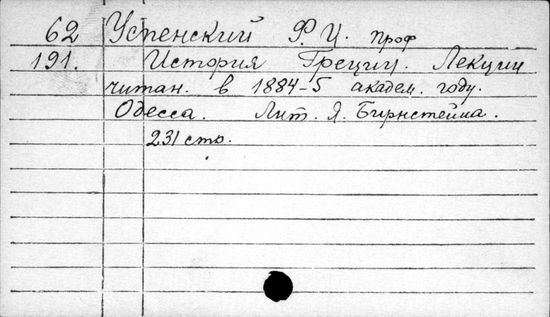 62 Успенский Ф. И. проф
191. История Греции. Лекции
читан. в 1884-5 академ. году.
Одесса. Лит. Я. Бирнстейна.
231 стр.